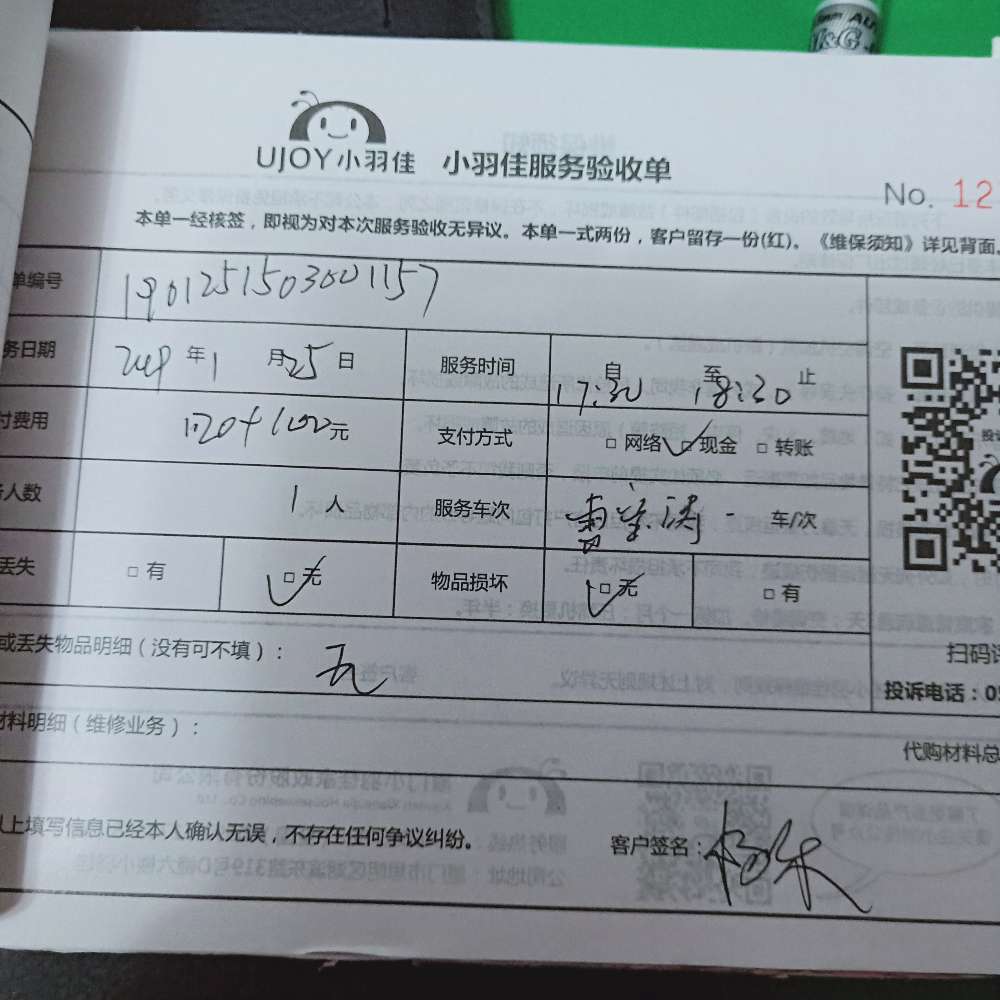 UJOY小羽佳 小羽佳服务验收单
No. 12
本单一经核签，即视为对本次服务验收无异议。本单一式两份，客户留存一份(红)。《维保须知》详见背面。
单编号 1901251503001157
务日期 2019 年 1 月 25 日 服务时间 自 17:30 至 18:30 止
付费用 120+100元 支付方式 □ 网络 ✓□ 现金 □ 转账
人数 1 人 服务车次 车/次
丢失 □ 有 ✓□ 无 物品损坏 ✓□ 无 □ 有
扫码
或丢失物品明细（没有可不填）： 无
投诉电话：05
材料明细（维修业务）：
代购材料总
以上填写信息已经本人确认无误，不存在任何争议纠纷。 客户签名：